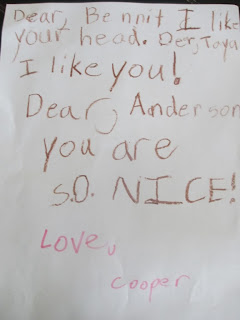 Dear, Bennit I like
your head. Der, Toya
I like you!
Dear, Anderson
you are
s.o. NICE!
Love,
cooper